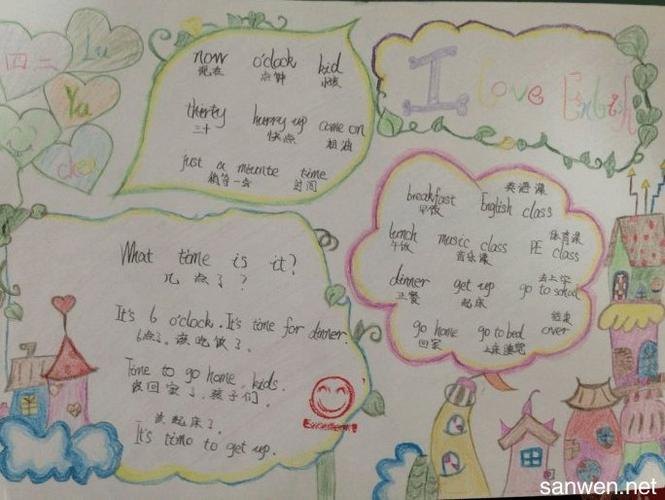 四二
Lu
Yu
chen
now o'clock kid
现在 点钟 小孩
thirty hurry up come on
三十 快点 加油
just a miunte time
稍等一会 时间
I love English
breakfast 英语课
早饭 English class
lunch music class 体育课
午饭 音乐课 PE class
dinner get up 去上学
正餐 起床 go to school
go home go to bed 结束
回家 上床睡觉 over
What time is it?
几点了?
It's 6 o'clock. It's time for dinner.
6点了。该吃饭了。
Time to go home, kids.
该回家了,孩子们。
该起床了。
It's time to get up.
sanwen.net